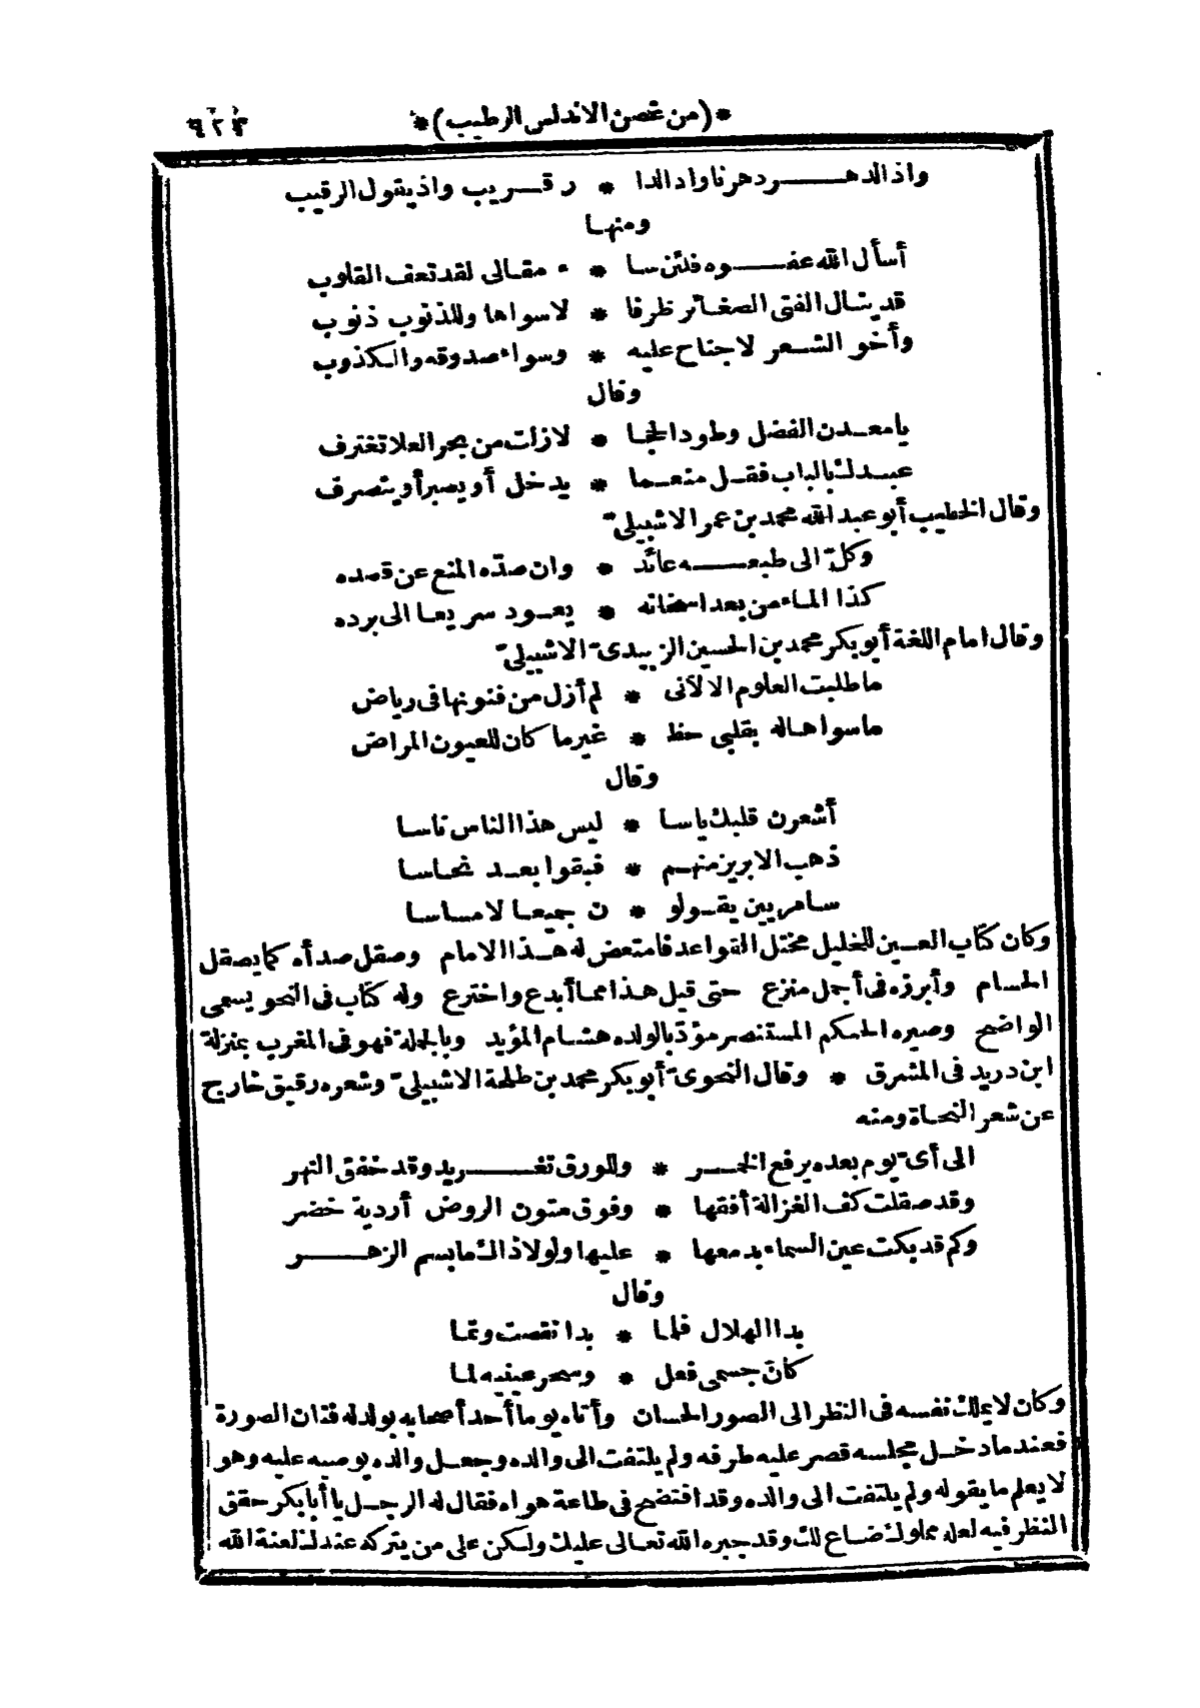 *(من غصن الاندلس الرطيب)*
واذ الدهــر دهرنا واد الدا * ر قــريب واذ يقول الرقيب
ومنها
أسأل الله عفــوه فلئن سا * ء مقالى لقد تعف القلوب
قد ينال الفتى الصغائر ظرفا * لا سواها وللذنوب ذنوب
وأخو الشعر لا جناح عليه * وسواء صدوقه والكذوب
وقال
يا معدن الفضل وطود الحجا * لا زلت من بحر العلا تغترف
عبدك بالباب فقل منعما * يدخل أو يصبر أو ينصرف
وقال الخطيب أبو عبد الله محمد بن عمر الاشبيلىّ
وكلّ الى طبعــه عائد * وان صدّه المنع عن قصده
كذا الماء من بعد اسخانه * يعود سريعا الى برده
وقال امام اللغة أبو بكر محمد بن الحسين الزبيدىّ الاشبيلىّ
ما طلبت العلوم الا لأنى * لم أزل من فنونها فى رياض
ما سواها له بقلبى حظ * غير ما كان للعيون المراض
وقال
أشعرن قلبك ياسا * ليس هذا الناس ناسا
ذهب الابريز منهم * فبقوا بعد نحاسا
سامريين يقولو * ن جميعا لا مساسا
وكان كتاب العين للخليل مختل القواعد فامتعض له هذا الامام وصقل صدأه كما يصقل
الحسام وأبرزه فى أجمل منزع حتى قيل هذا مما أبدع واخترع وله كتاب فى النحو يسمى
الواضح وصيره الحكم المستنصر مؤدّبا لولده هشام المؤيد وبالجملة فهو فى المغرب بمنزلة
ابن دريد فى المشرق * وقال النحوىّ أبو بكر محمد بن طلحة الاشبيلىّ وشعره رقيق خارج
عن شعر النحاة ومنه
الى أىّ يوم بعده يرفع الخمــر * وللورق تغــريد وقد خفق النهر
وقد صقلت كف الغزالة أفقها * وفوق متون الروض أردية خضر
وكم قد بكت عين السماء بدمعها * عليها ولولا ذاك ما بسم الزهــر
وقال
بدا الهلال فلما * بدا نقصت وتما
كأن جسمى فعل * وسحر عينيه لما
وكان لا يملك نفسه فى النظر الى الصور الحسان وأتاه يوما أحد أصحابه بولد له فتان الصورة
فعند ما دخل مجلسه قصر عليه طرفه ولم يلتفت الى والده وجعل والده يوصيه عليه وهو
لا يعلم ما يقوله ولم يلتفت الى والده وقد افتضح فى طاعة هواه فقال له الرجل يا أبا بكر حقق
النظر فيه لعله مملوك ضاع لك وقد جبره الله تعالى عليك ولكن على من يتركه عندك لعنة الله